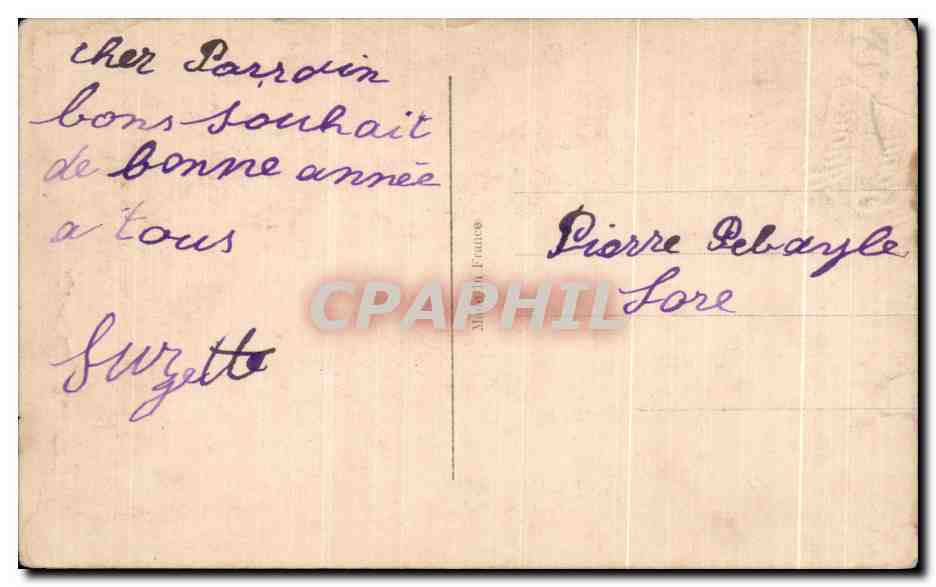 cher Parrain
bons souhait
de bonne année
a tous
Suzette
Made in France
Pierre Pebayle
Sore
CPAPHIL